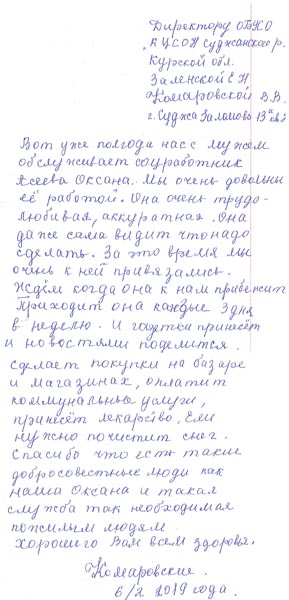 Директору ОБУСО
„КЦСОН Суджанского р.
Курской обл.
Заленской Е Н
Комаровской В.В.
г. Суджа Заломово 13а
Вот уже полгода нас с мужем
обслуживает соцработник
Асеева Оксана. Мы очень довольны
её работой. Она очень трудо-
любивая, аккуратная. Она
даже сама видит что надо
сделать. За это время мы
очень к ней привязались.
Ждём когда она к нам прибежит
Приходит она каждые 3 дня
в неделю. И газетки принесёт
и новостями поделится.
Сделает покупки на базаре
и магазинах, оплатит
коммунальные услуги,
принесёт лекарство, Если
нужно почистит снег.
Спасибо что есть такие
добросовестные люди как
наша Оксана и такая
служба так необходимая
пожилым людям
Хорошего Вам всем здоровья.
Комаровские.
6/2 2019 года.